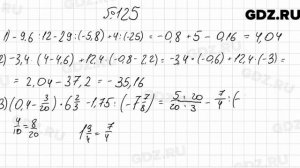 №125
GDZ.RU
1) -9,6:12-29:(-5,8)+4:(-25) = -0,8+5-0,16 = 4,04
2) -3,4·(4-4,6)+12,4·(-0,8-2,2) = -3,4·(-0,6)+12,4·(-3) =
= 2,04-37,2 = -35,16
3) (0,4-3/20)·6 2/3-1,75:(-7 7/8) = 5·20/20·3 - 7/4:(-
4/10 = 8/20
1 3/4 = 7/4
GDZ.RU